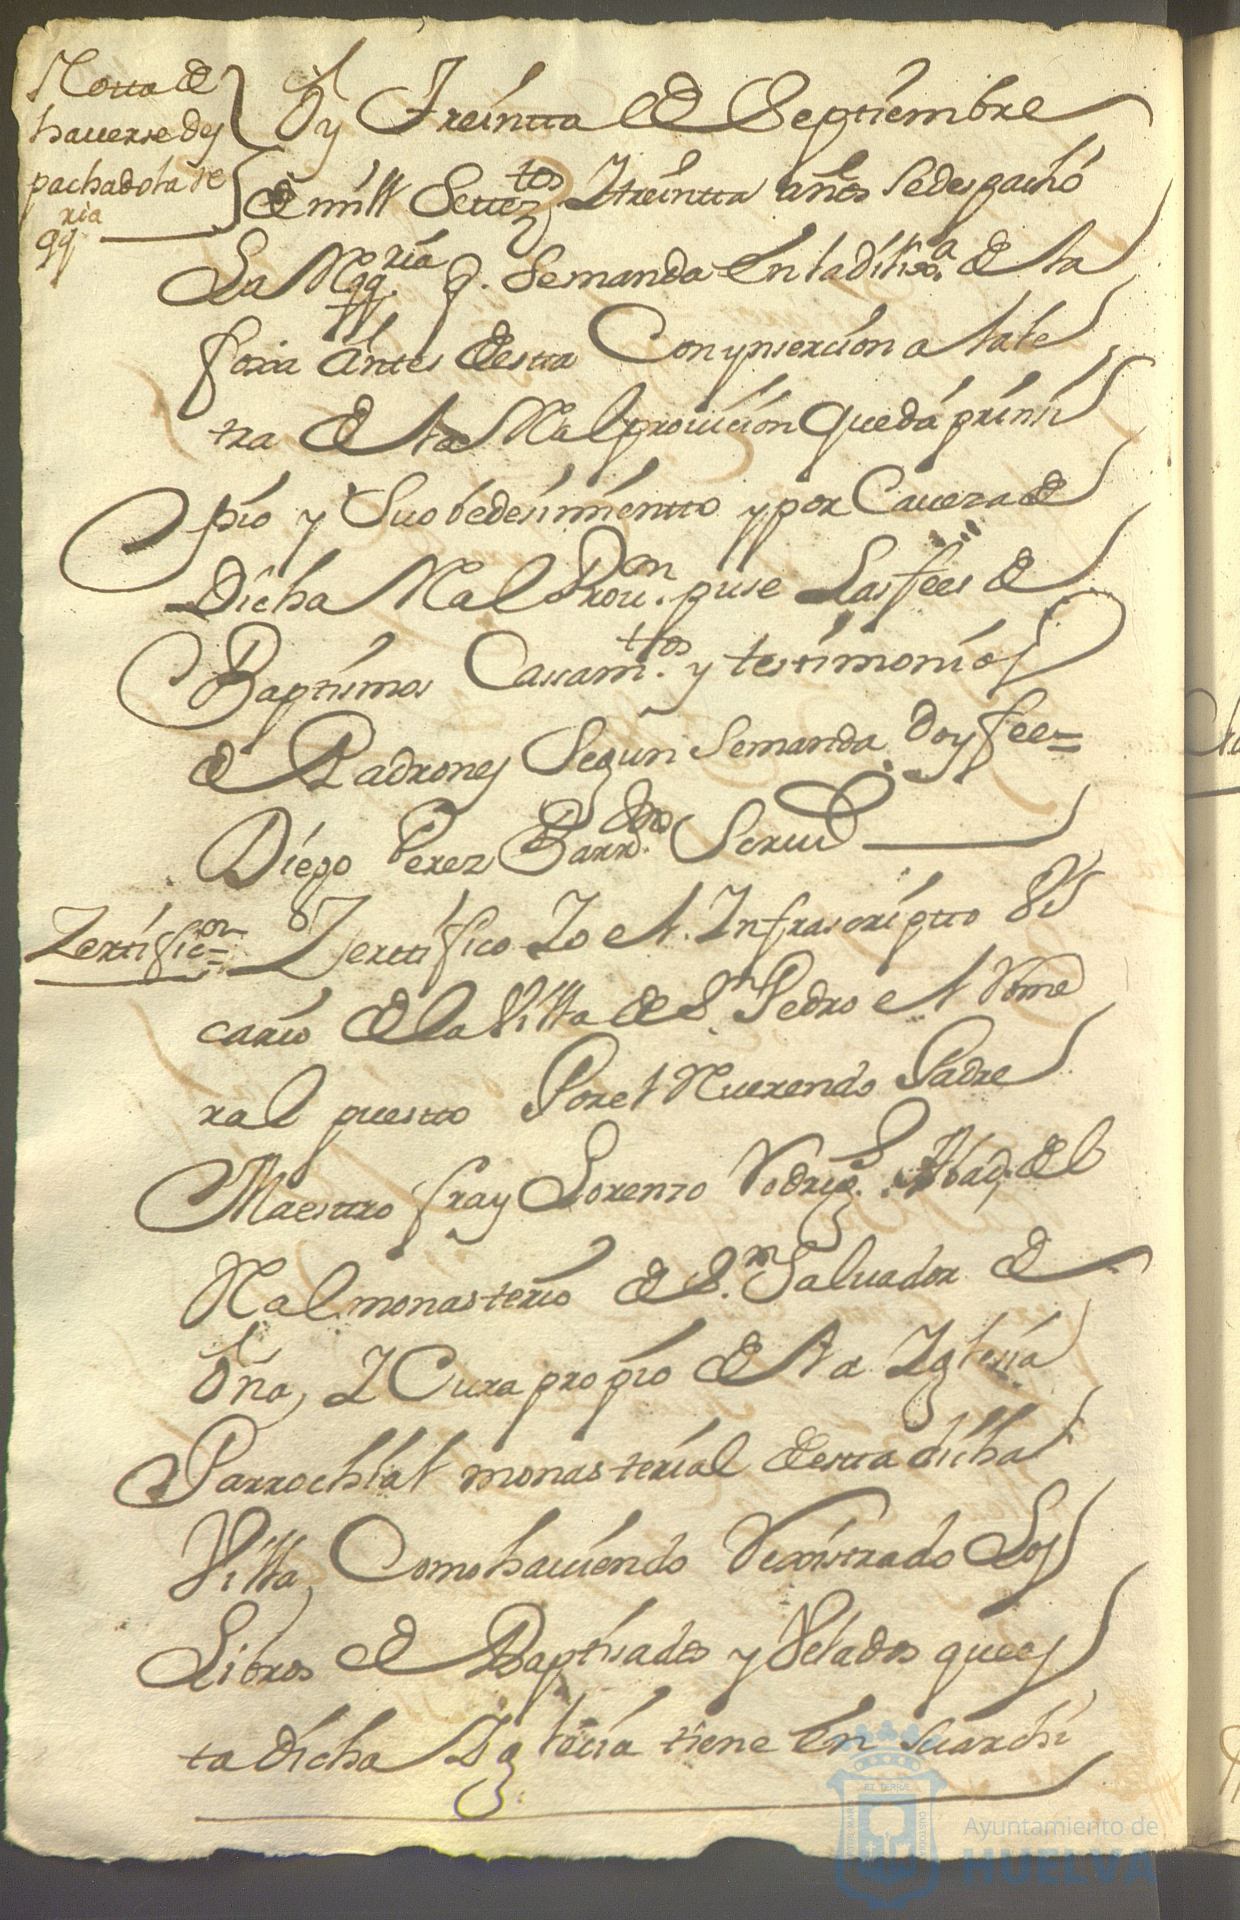 Notta de
haverse des
pachado la Re
qq.ria
Oy Treintta de Septiembre
de mill Settez.tos Ytreintta años se despachó
La Rqq.ria q. Semanda en la dilix.a de la
foxa antes desta Con ynserсion a la le
tra de la Real provicion que dá prinsi
pio y Su obedesimientto y por Caveza de
Dicha Real Prov.on puse Las fees de
Baptismos Casam.ttos y testimonios
de Padrones Segun Semanda doy fee=
Diego Perez Barr.do Scriv.o
Zertific.on= Zerttifico Yo el Infrascriptto Vi
cario de la Villa de S.n Pedro el Nome
ral puestto Por el Reverendo Padre
Maesttro fray Lorenzo Rodrig.z Abad del
Real monasterio de S.n Salvador de
Oña, Y Cura propio de la Yglesia
Parrochial monasterial desta dicha
Villa, Como haviendo Rexistrado Los
Libros de Baptisados y Velados que es
ta dicha Yglesia tiene en su archi
Ayuntamiento de
HUELVA